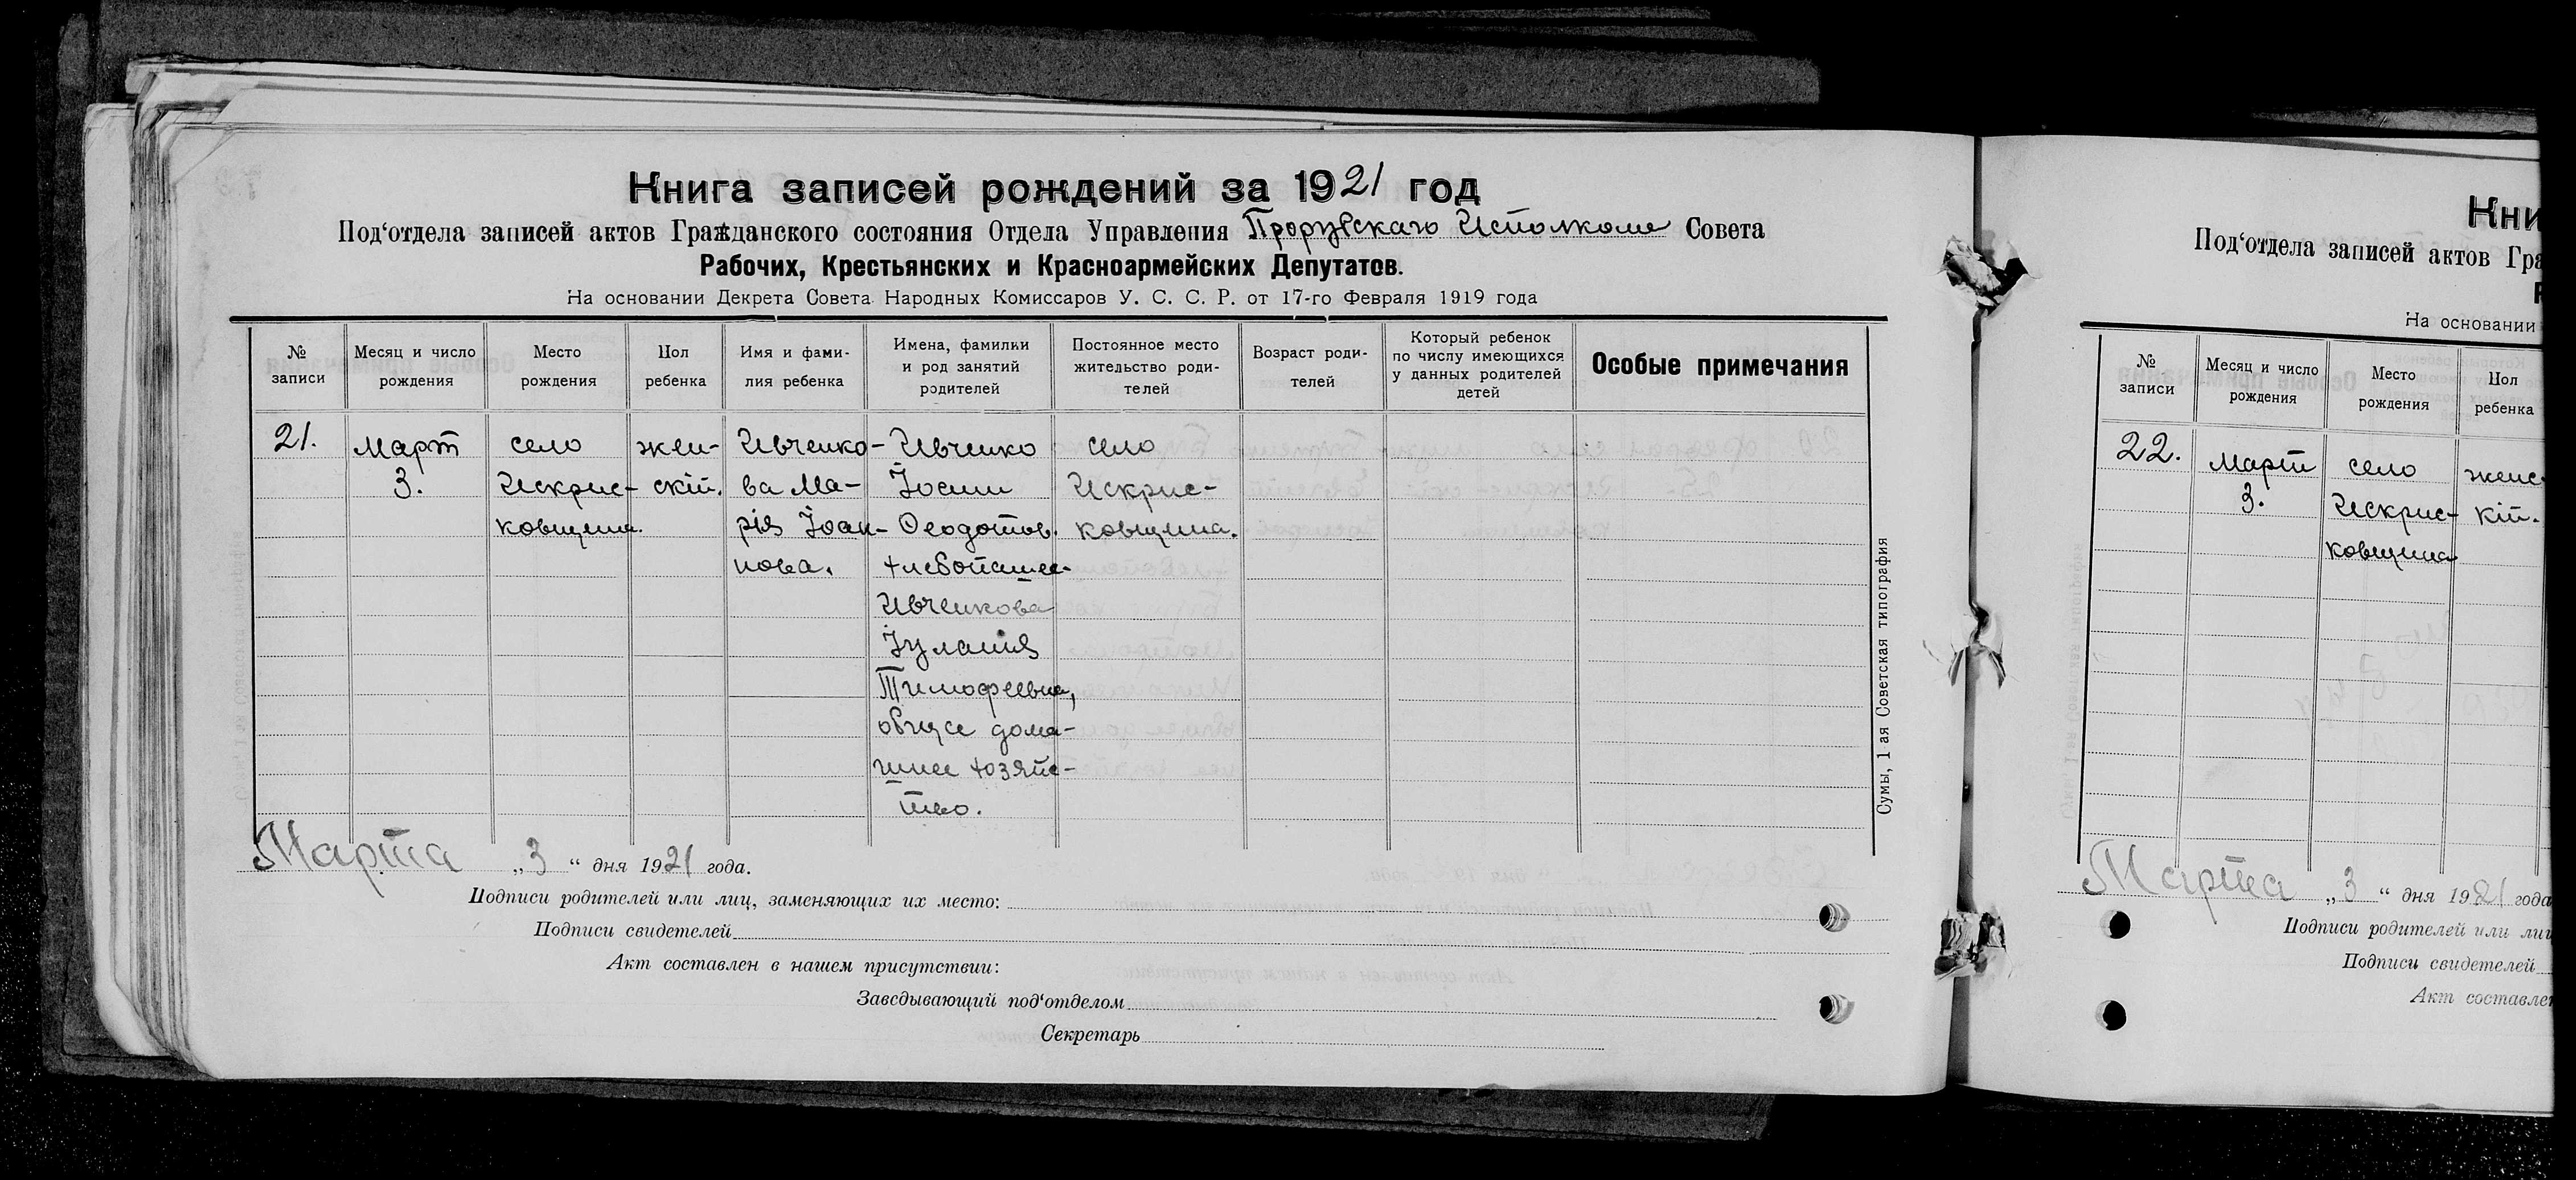 Книга записей рождений за 1921 год
Под‘отдела записей актов Гражданского состояния Отдела Управления Прорубскаго Исполкома Совета
Рабочих, Крестьянских и Красноармейских Депутатов.
На основании Декрета Совета Народных Комиссаров У. С. С. Р. от 17-го Февраля 1919 года
№ записи
Месяц и число рождения
Место рождения
Пол ребенка
Имя и фами-
лия ребенка
Имена, фамилии
и род занятий
родителей
Постоянное место
жительство роди-
телей
Возраст роди-
телей
Который ребенок
по числу имеющихся
у данных родителей
детей
Особые примечания
21.
Март
3.
село
Искрис-
ковщина.
жен-
скій.
Ивченко-
ва Ма-
рія Іоан-
нова.
Ивченко
Іоанн
Феодотов.
хлебопашец.
Ивченкова
Іуланія
Тимофеевна,
общее дома-
шнее хозяйс-
тво.
село
Искрис-
ковщина.
Сумы, 1-ая Советская типография
Марта „3“ дня 1921 года.
Подписи родителей или лиц, заменяющих их место:
Подписи свидетелей
Акт составлен в нашем присутствии:
Заведывающий под‘отделом
Секретарь
Кни
Под‘отдела записей актов Гра
На основании
№ записи
Месяц и число рождения
Место рождения
Пол ребенка
22.
Март
3.
село
Искрис-
ковщина
женс-
кій.
Марта „3“ дня 1921 года
Подписи родителей или лиц
Подписи свидетелей
Акт составлен